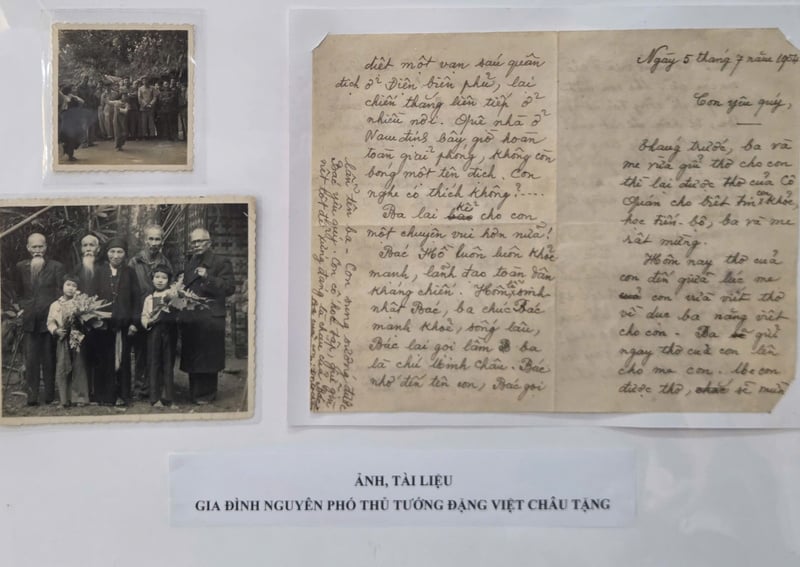 diệt một vạn sáu quân
địch ở Điện biên phủ, lại
chiến thắng liên tiếp ở
nhiều nơi. Quê nhà ở
Nam định bây giờ hoàn
toàn giải phóng, không còn
bóng một tên địch. Con
nghe có thích không?....
Ba lại kể cho con
một chuyện vui hơn nữa!
Bác Hồ luôn luôn khỏe
mạnh, lãnh đạo toàn dân
kháng chiến. Hôm sinh
nhật Bác, ba chúc Bác
mạnh khoẻ, sống lâu,
Bác lại gọi lầm ba
là chú Minh Châu. Bác
nhớ đến tên con, Bác gọi
lần tên ba. Con sung sướng được
Bác yêu quý. Con cố học tập, giữ gìn
nết tốt để xứng đáng là cháu của Bác
Ngày 5 tháng 7 năm 195
Con yêu quý,
Tháng trước, ba và
mẹ vừa gửi thơ cho con
thì lại được thơ của Cô
Quán cho biết tin con khỏe,
học tiến bộ, ba và mẹ
rất mừng.
Hôm nay thơ của
con đến giữa lúc mẹ
con vừa viết thơ
về dục ba năng viết
cho con. Ba gửi
ngay thơ của con lên
cho mẹ con. Mẹ con
được thơ, chắc sẽ mừn
ẢNH, TÀI LIỆU
GIA ĐÌNH NGUYÊN PHÓ THỦ TƯỚNG ĐẶNG VIỆT CHÂU TẶNG